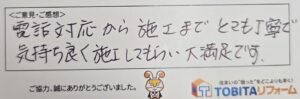 <ご意見・ご感想>
電話対応から施工までとても丁寧で
気持ち良く施工してもらい大満足です。
ご協力、誠にありがとうございました。
住まいの"困った"をどこよりも早く!
TOBITAリフォーム